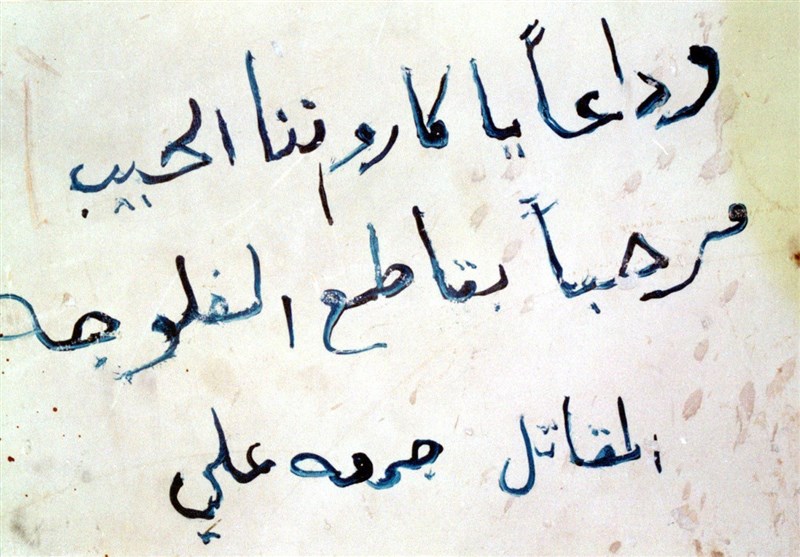 وداعاً يا كاروننا الحبيب
مرحباً بقاطع الفلوجه
المقاتل علي